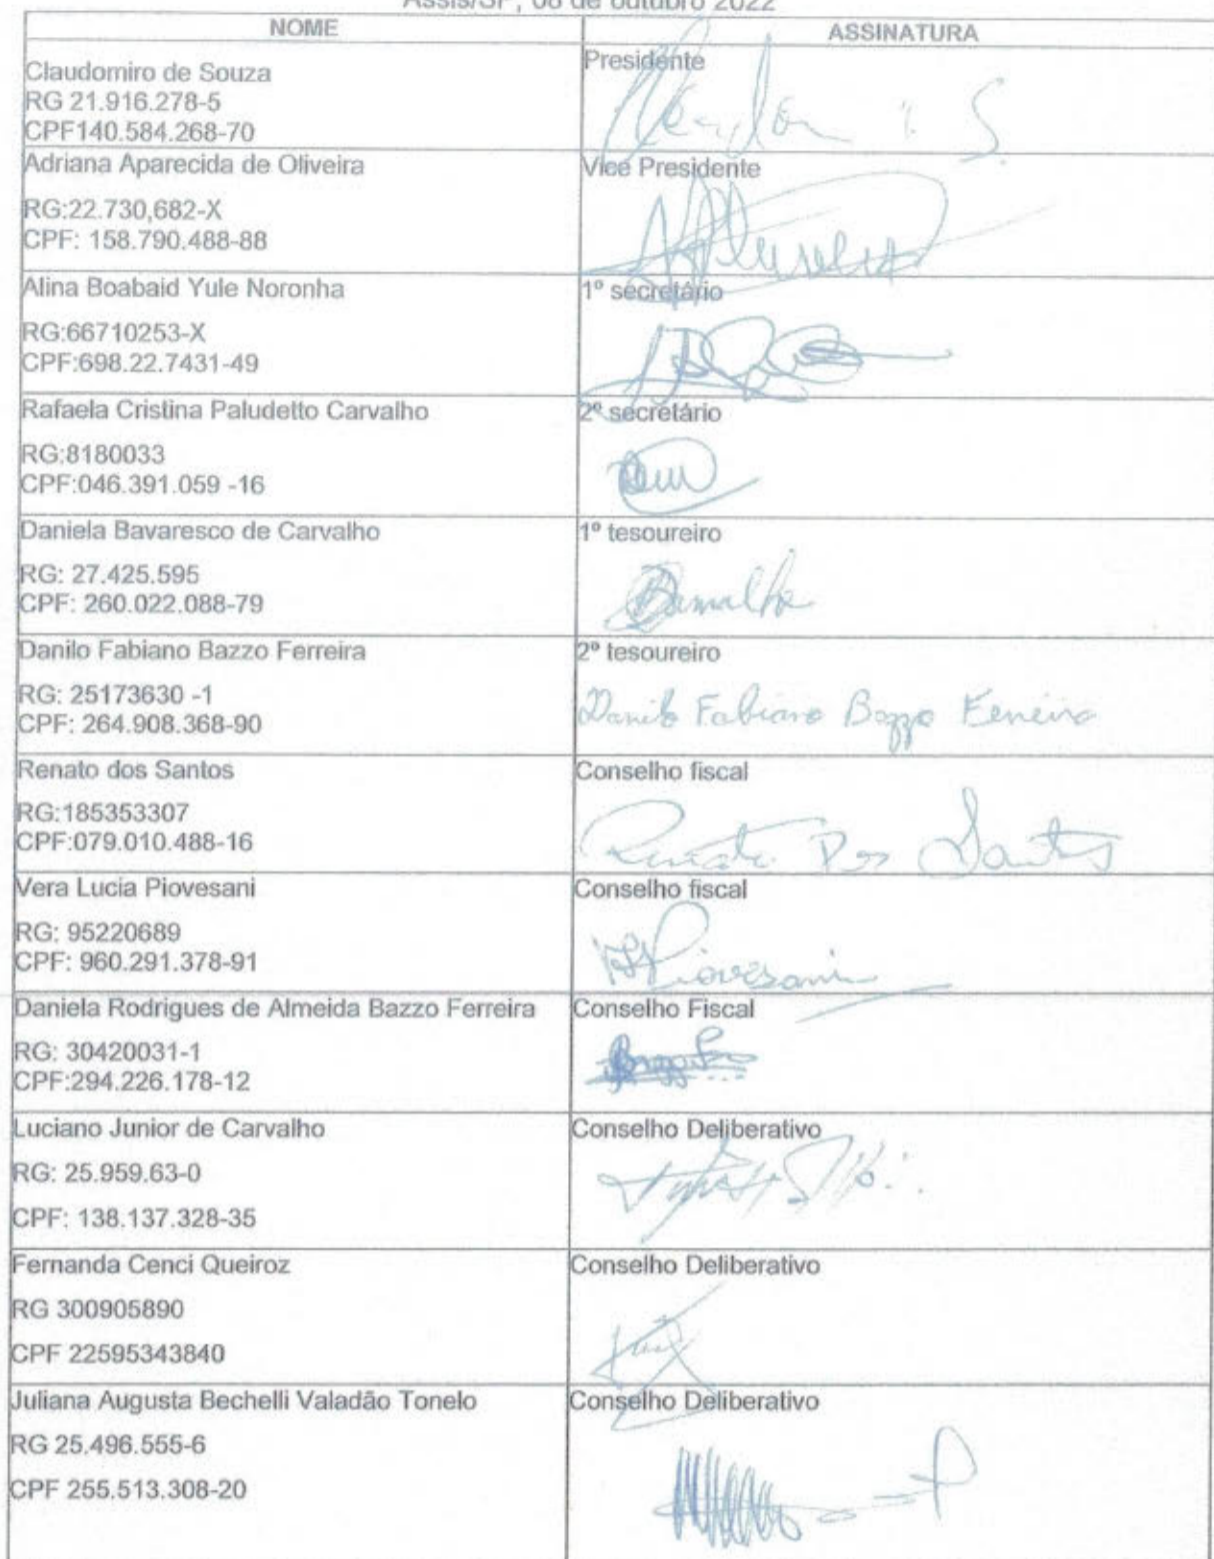 Assis/SP, 08 de outubro 2022
NOME
ASSINATURA
Claudomiro de Souza
RG 21.916.278-5
CPF140.584.268-70
Presidente
Adriana Aparecida de Oliveira
RG:22.730,682-X
CPF: 158.790.488-88
Vice Presidente
Alina Boabaid Yule Noronha
RG:66710253-X
CPF:698.22.7431-49
1º secretário
Rafaela Cristina Paludetto Carvalho
RG:8180033
CPF:046.391.059 -16
2º secretário
Daniela Bavaresco de Carvalho
RG: 27.425.595
CPF: 260.022.088-79
1º tesoureiro
Danilo Fabiano Bazzo Ferreira
RG: 25173630 -1
CPF: 264.908.368-90
2º tesoureiro
Danilo Fabiano Bazzo Ferreira
Renato dos Santos
RG:185353307
CPF:079.010.488-16
Conselho fiscal
Renato Dos Santos
Vera Lucia Piovesani
RG: 95220689
CPF: 960.291.378-91
Conselho fiscal
Piovesani
Daniela Rodrigues de Almeida Bazzo Ferreira
RG: 30420031-1
CPF:294.226.178-12
Conselho Fiscal
Luciano Junior de Carvalho
RG: 25.959.63-0
CPF: 138.137.328-35
Conselho Deliberativo
Fernanda Cenci Queiroz
RG 300905890
CPF 22595343840
Conselho Deliberativo
Juliana Augusta Bechelli Valadão Tonelo
RG 25.496.555-6
CPF 255.513.308-20
Conselho Deliberativo